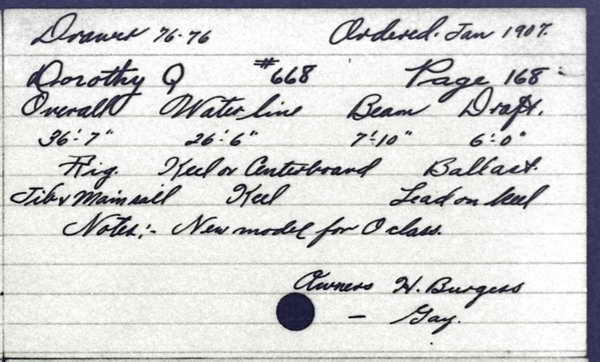 Drawer 76-76 Ordered. Jan 1907.
Dorothy Q #668 Page 168
Overall Water line Beam Draft.
36'-7" 26'-6" 7'-10" 6'-0"
Rig. Keel or Centerboard Ballast.
Jib & Mainsail Keel Lead on keel
Notes:- New model for Q class.
Owners H. Burgess
- Gay.